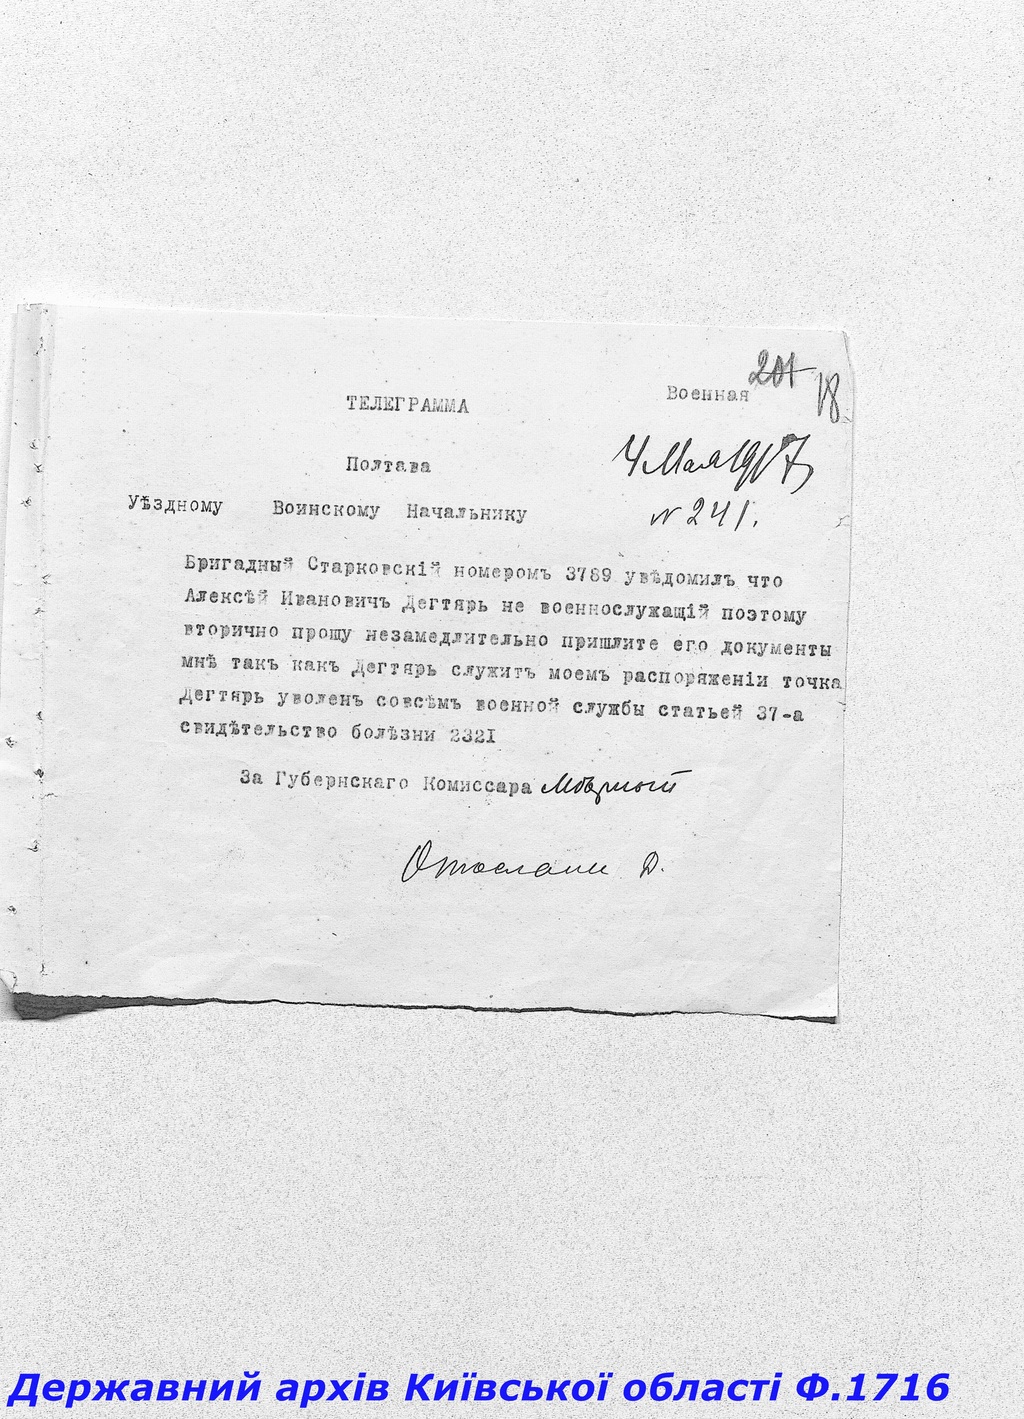 201
18
Военная
ТЕЛЕГРАММА
4 Мая 1917
Полтава
№ 241.
Уѣздному Воинскому Начальнику
Бригадный Старковскій номеромъ 3789 увѣдомилъ что
Алексѣй Ивановичъ Дегтярь не военнослужащій поэтому
вторично прошу незамедлительно пришлите его документы
мнѣ такъ какъ Дегтярь служитъ моемъ распоряженіи точка
Дегтярь уволенъ совсѣмъ военной службы статьей 37-а
свидѣтельство болѣзни 2321
За Губернскаго Комиссара
Державний архів Київської області Ф.1716